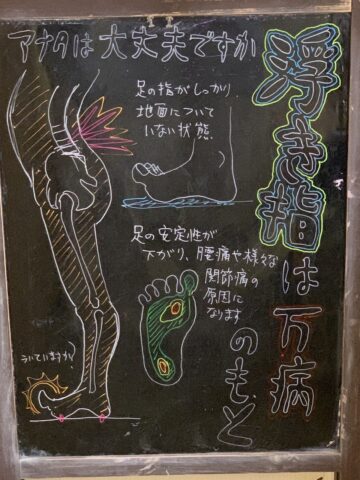 アナタは大丈夫ですか
浮き指は万病
のもと
足の指がしっかり
地面について
いない状態
足の安定性が
下がり、腰痛や様々な
関節痛の
原因に
なります
ういていますか